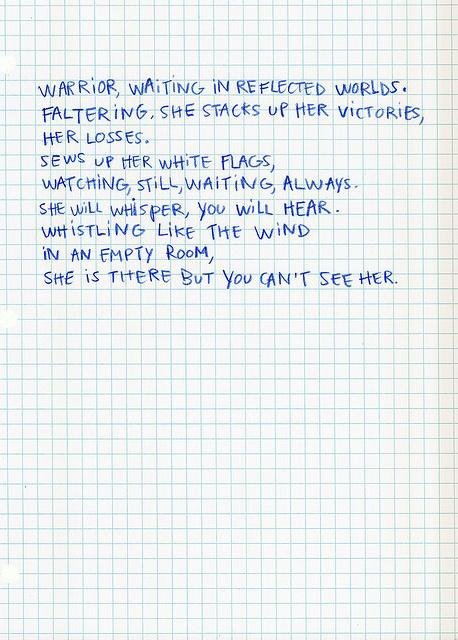 WARRIOR, WAITING IN REFLECTED WORLDS.
FALTERING. SHE STACKS UP HER VICTORIES,
HER LOSSES.
SEWS UP HER WHITE FLAGS,
WATCHING, STILL, WAITING, ALWAYS.
SHE WILL WHISPER, YOU WILL HEAR.
WHISTLING LIKE THE WIND
IN AN EMPTY ROOM,
SHE IS THERE BUT YOU CAN'T SEE HER.